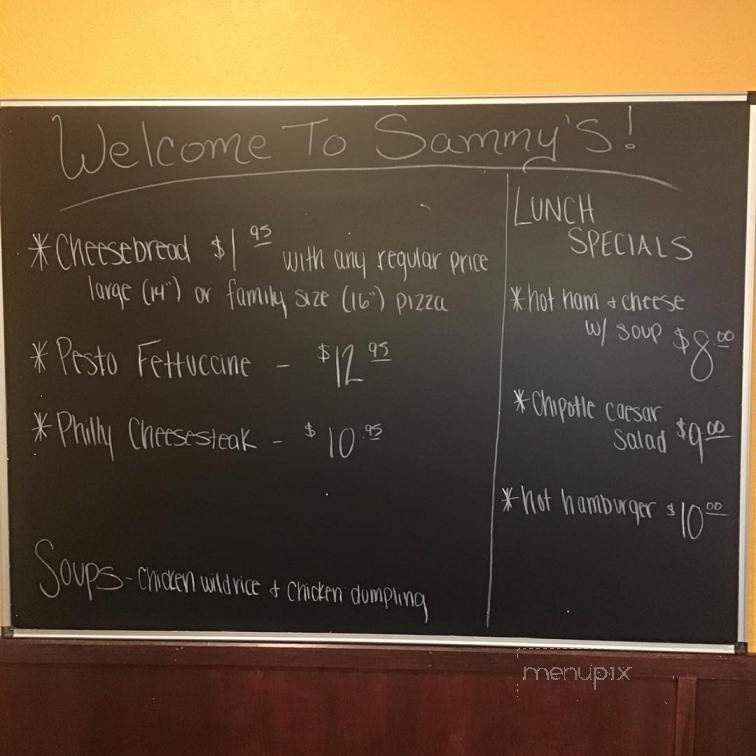 Welcome To Sammy's!
*Cheesebread $1 95 with any regular price
large (14") or family size (16") pizza
*Pesto Fettuccine - $12 95
*Philly Cheesesteak - $10.95
Soups - Chicken wildrice + Chicken dumpling
LUNCH
SPECIALS
*hot ham + cheese
w/ soup $8 00
*Chipotle caesar
salad $9 00
*hot hamburger $10 00
menupix